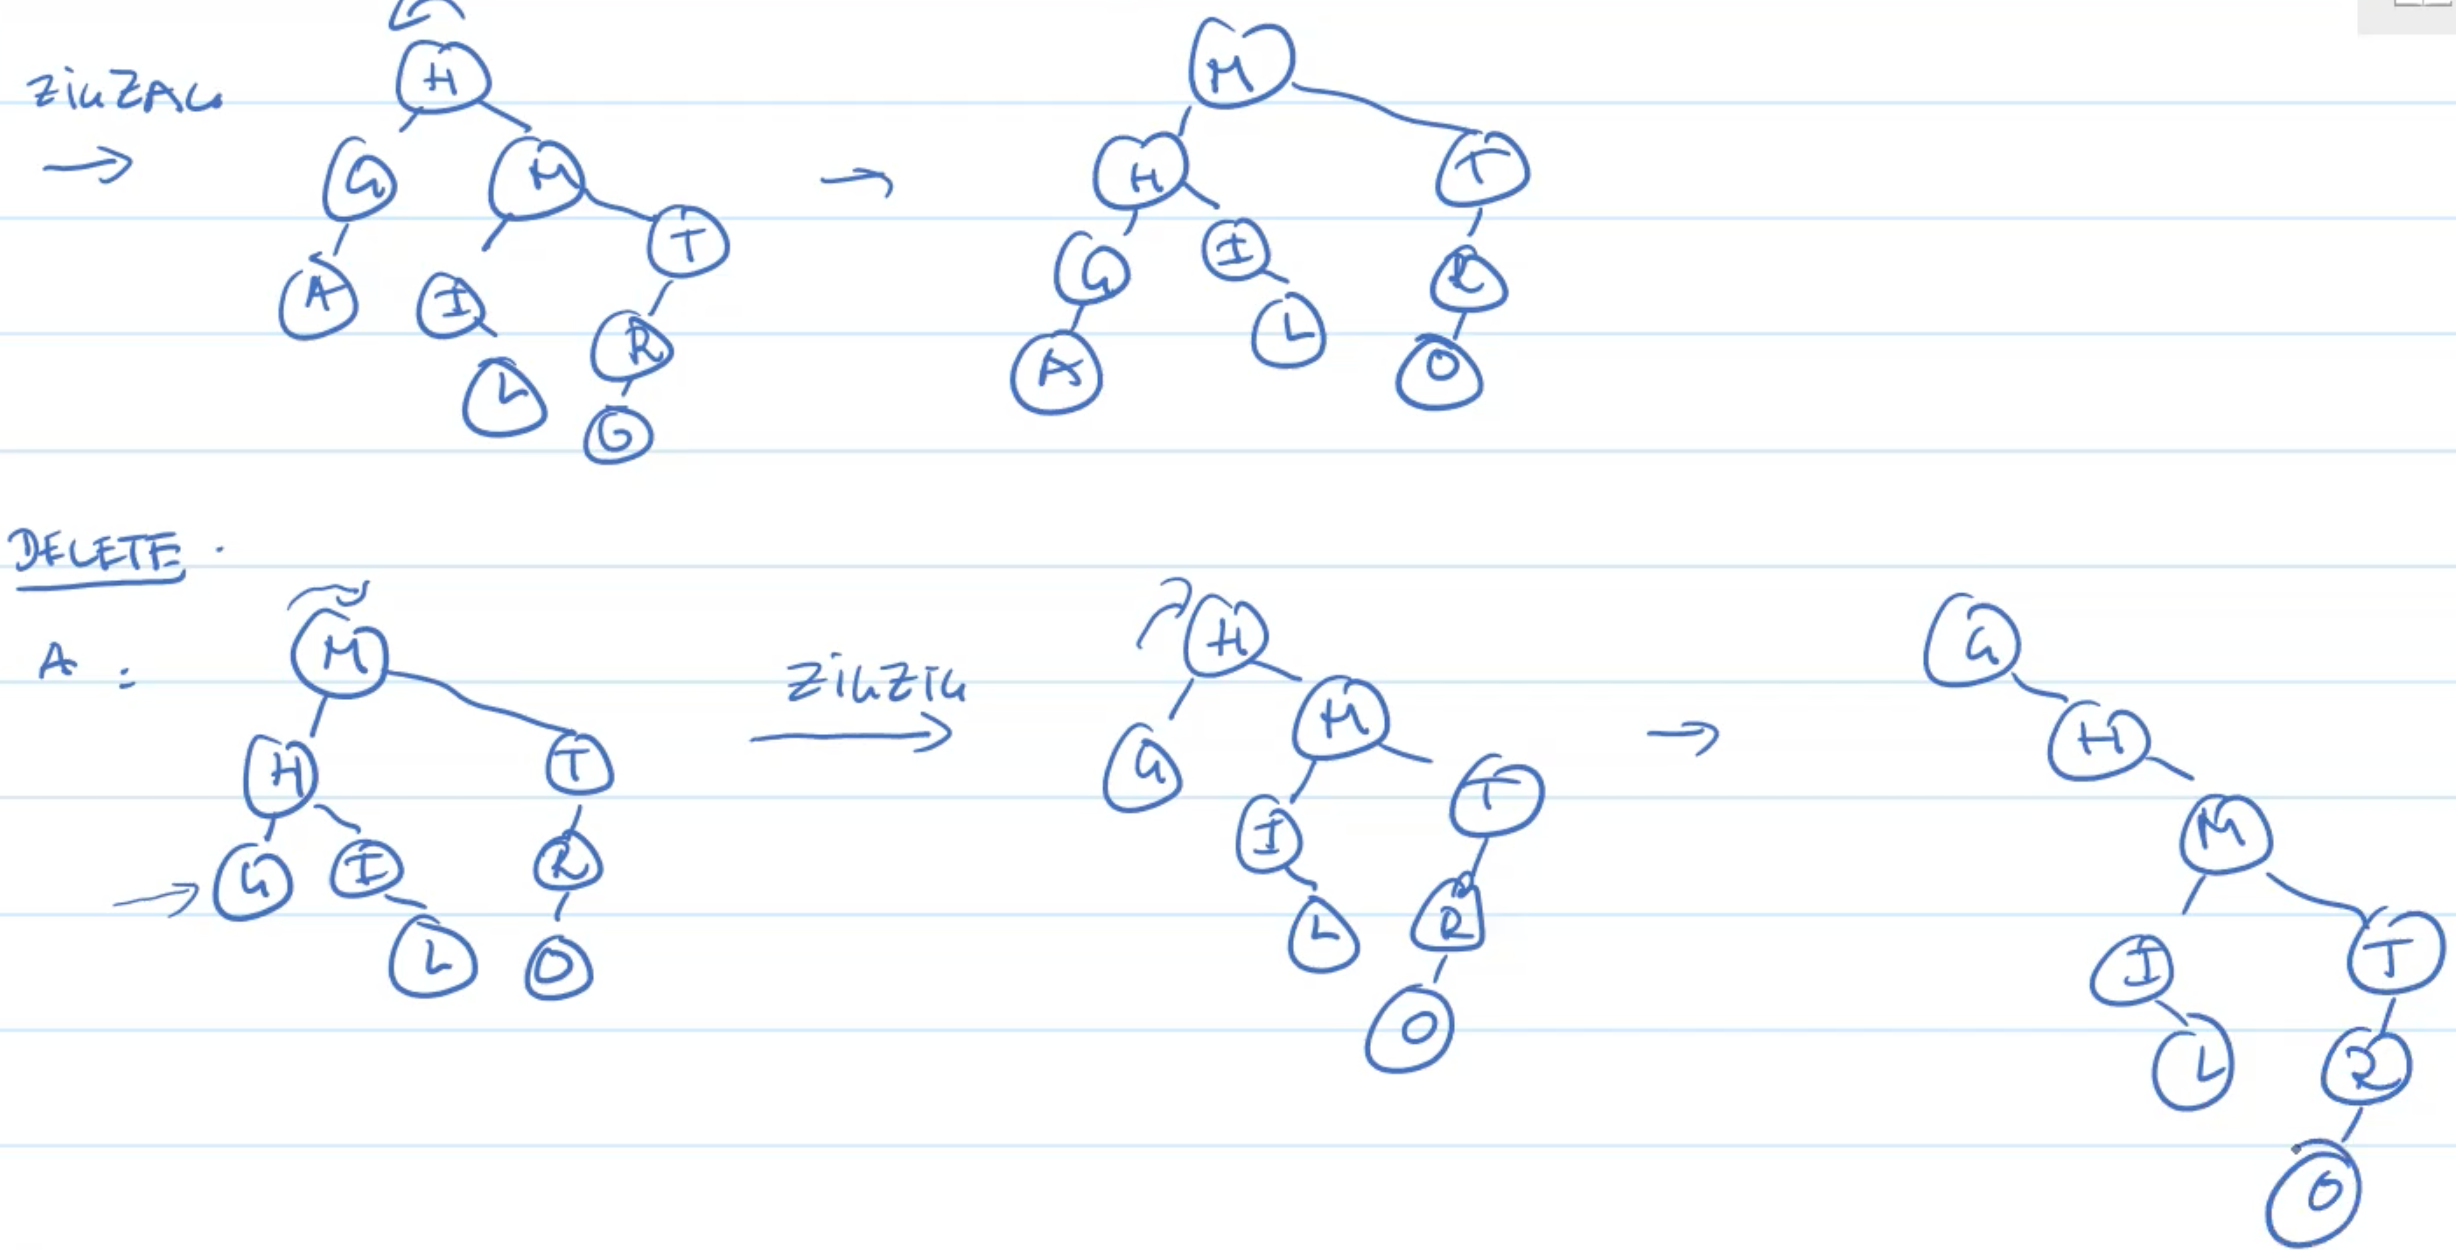 ZIGZAG
H
G M
A I T
L R
O
M
H T
G I R
A L O
DELETE.
A :
M
H T
G I R
L O
ZIGZIG
H
G M
I T
L R
O
G
H
M
I T
L R
O